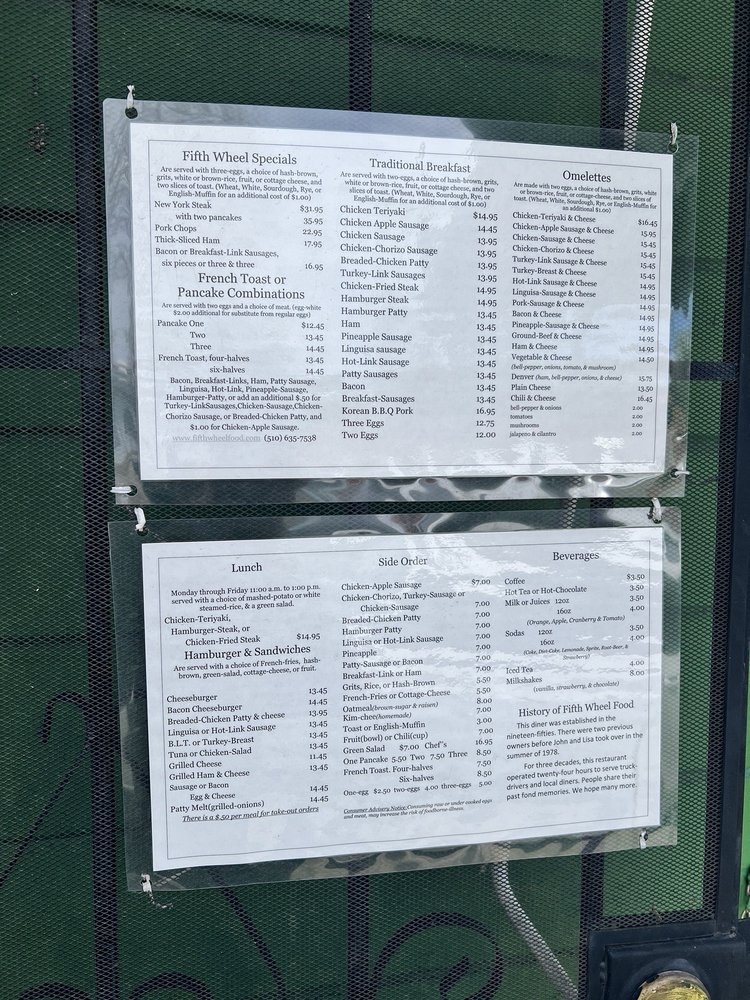 Fifth Wheel Specials
Are served with three-eggs, a choice of hash-brown,
grits, white or brown-rice, fruit, or cottage cheese, and
two slices of toast. (Wheat, White, Sourdough, Rye, or
English-Muffin for an additional cost of $1.00)
New York Steak $31.95
with two pancakes 35.95
Pork Chops 22.95
Thick-Sliced Ham 17.95
Bacon or Breakfast-Link Sausages,
six pieces or three & three 16.95
French Toast or
Pancake Combinations
Are served with two eggs and a choice of meat. (egg-white
$2.00 additional for substitute from regular eggs)
Pancake One $12.45
Two 13.45
Three 14.45
French Toast, four-halves 13.45
six-halves 14.45
Bacon, Breakfast-Links, Ham, Patty Sausage,
Linguisa, Hot-Link, Pineapple-Sausage,
Hamburger-Patty, or add an additional $.50 for
Turkey-LinkSausages,Chicken-Sausage,Chicken-
Chorizo Sausage, or Breaded-Chicken Patty, and
$1.00 for Chicken-Apple Sausage.
www.fifthwheelfood.com (510) 635-7538
Traditional Breakfast
Are served with two-eggs, a choice of hash-brown, grits,
white or brown-rice, fruit, or cottage cheese, and two
slices of toast. (Wheat, White, Sourdough, Rye, or
English-Muffin for an additional cost of $1.00)
Chicken Teriyaki $14.95
Chicken Apple Sausage 14.45
Chicken Sausage 13.95
Chicken-Chorizo Sausage 13.95
Breaded-Chicken Patty 13.95
Turkey-Link Sausages 13.95
Chicken-Fried Steak 14.95
Hamburger Steak 14.95
Hamburger Patty 13.45
Ham 13.45
Pineapple Sausage 13.45
Linguisa sausage 13.45
Hot-Link Sausage 13.45
Patty Sausages 13.45
Bacon 13.45
Breakfast-Sausages 13.45
Korean B.B.Q Pork 16.95
Three Eggs 12.75
Two Eggs 12.00
Omelettes
Are made with two eggs, a choice of hash-brown, grits, white
or brown-rice, fruit, or cottage cheese, and two slices of
toast. (Wheat, White, Sourdough, Rye, or English-Muffin for
an additional $1.00)
Chicken-Teriyaki & Cheese $16.45
Chicken-Apple Sausage & Cheese 15.95
Chicken-Sausage & Cheese 15.45
Chicken-Chorizo & Cheese 15.45
Turkey-Link Sausage & Cheese 15.45
Turkey-Breast & Cheese 15.45
Hot-Link Sausage & Cheese 14.95
Linguisa-Sausage & Cheese 14.95
Pork-Sausage & Cheese 14.95
Bacon & Cheese 14.95
Pineapple-Sausage & Cheese 14.95
Ground-Beef & Cheese 14.95
Ham & Cheese 14.95
Vegetable & Cheese 14.50
(bell-pepper, onions, tomato, & mushroom)
Denver (ham, bell-pepper, onions, & cheese) 15.75
Plain Cheese 13.50
Chili & Cheese 16.45
bell-pepper & onions 2.00
tomatoes 2.00
mushrooms 2.00
jalapeno & cilantro 2.00
Lunch
Monday through Friday 11:00 a.m. to 1:00 p.m.
served with a choice of mashed-potato or white
steamed-rice, & a green salad.
Chicken-Teriyaki,
Hamburger-Steak, or
Chicken-Fried Steak $14.95
Hamburger & Sandwiches
Are served with a choice of French-fries, hash-
brown, green-salad, cottage-cheese, or fruit.
Cheeseburger 13.45
Bacon Cheeseburger 14.45
Breaded-Chicken Patty & cheese 13.95
Linguisa or Hot-Link Sausage 13.45
B.L.T. or Turkey-Breast 13.45
Tuna or Chicken-Salad 13.45
Grilled Cheese 11.45
Grilled Ham & Cheese 13.45
Sausage or Bacon
Egg & Cheese 14.45
Patty Melt(grilled-onions) 14.45
There is a $.50 per meal for take-out orders
Side Order
Chicken-Apple Sausage $7.00
Chicken-Chorizo, Turkey-Sausage or
Chicken-Sausage 7.00
Breaded-Chicken Patty 7.00
Hamburger Patty 7.00
Linguisa or Hot-Link Sausage 7.00
Pineapple 7.00
Patty-Sausage or Bacon 7.00
Breakfast-Link or Ham 7.00
Grits, Rice, or Hash-Brown 5.50
French-Fries or Cottage-Cheese 5.50
Oatmeal(brown-sugar & raisen) 8.00
Kim-chee(homemade) 7.00
Toast or English-Muffin 3.00
Fruit(bowl) or Chili(cup) 7.00
Green Salad $7.00 Chef's 16.95
One Pancake 5.50 Two 7.50 Three 8.50
French Toast. Four-halves 7.50
Six-halves 8.50
One-egg $2.50 two-eggs 4.00 three-eggs 5.00
Consumer Advisory Notice Consuming raw or under cooked eggs
and meat, may increase the risk of foodborne illness.
Beverages
Coffee $3.50
Hot Tea or Hot-Chocolate 3.50
Milk or Juices 12oz 3.50
16oz 4.00
(Orange, Apple, Cranberry & Tomato)
Sodas 12oz 3.50
16oz 4.00
(Coke, Diet-Coke, Lemonade, Sprite, Root-Beer, &
Strawberry)
Iced Tea 4.00
Milkshakes 8.00
(vanilla, strawberry, & chocolate)
History of Fifth Wheel Food
This diner was established in the
nineteen-fifties. There were two previous
owners before John and Lisa took over in the
summer of 1978.
For three decades, this restaurant
operated twenty-four hours to serve truck-
drivers and local diners. People share their
past fond memories. We hope many more.